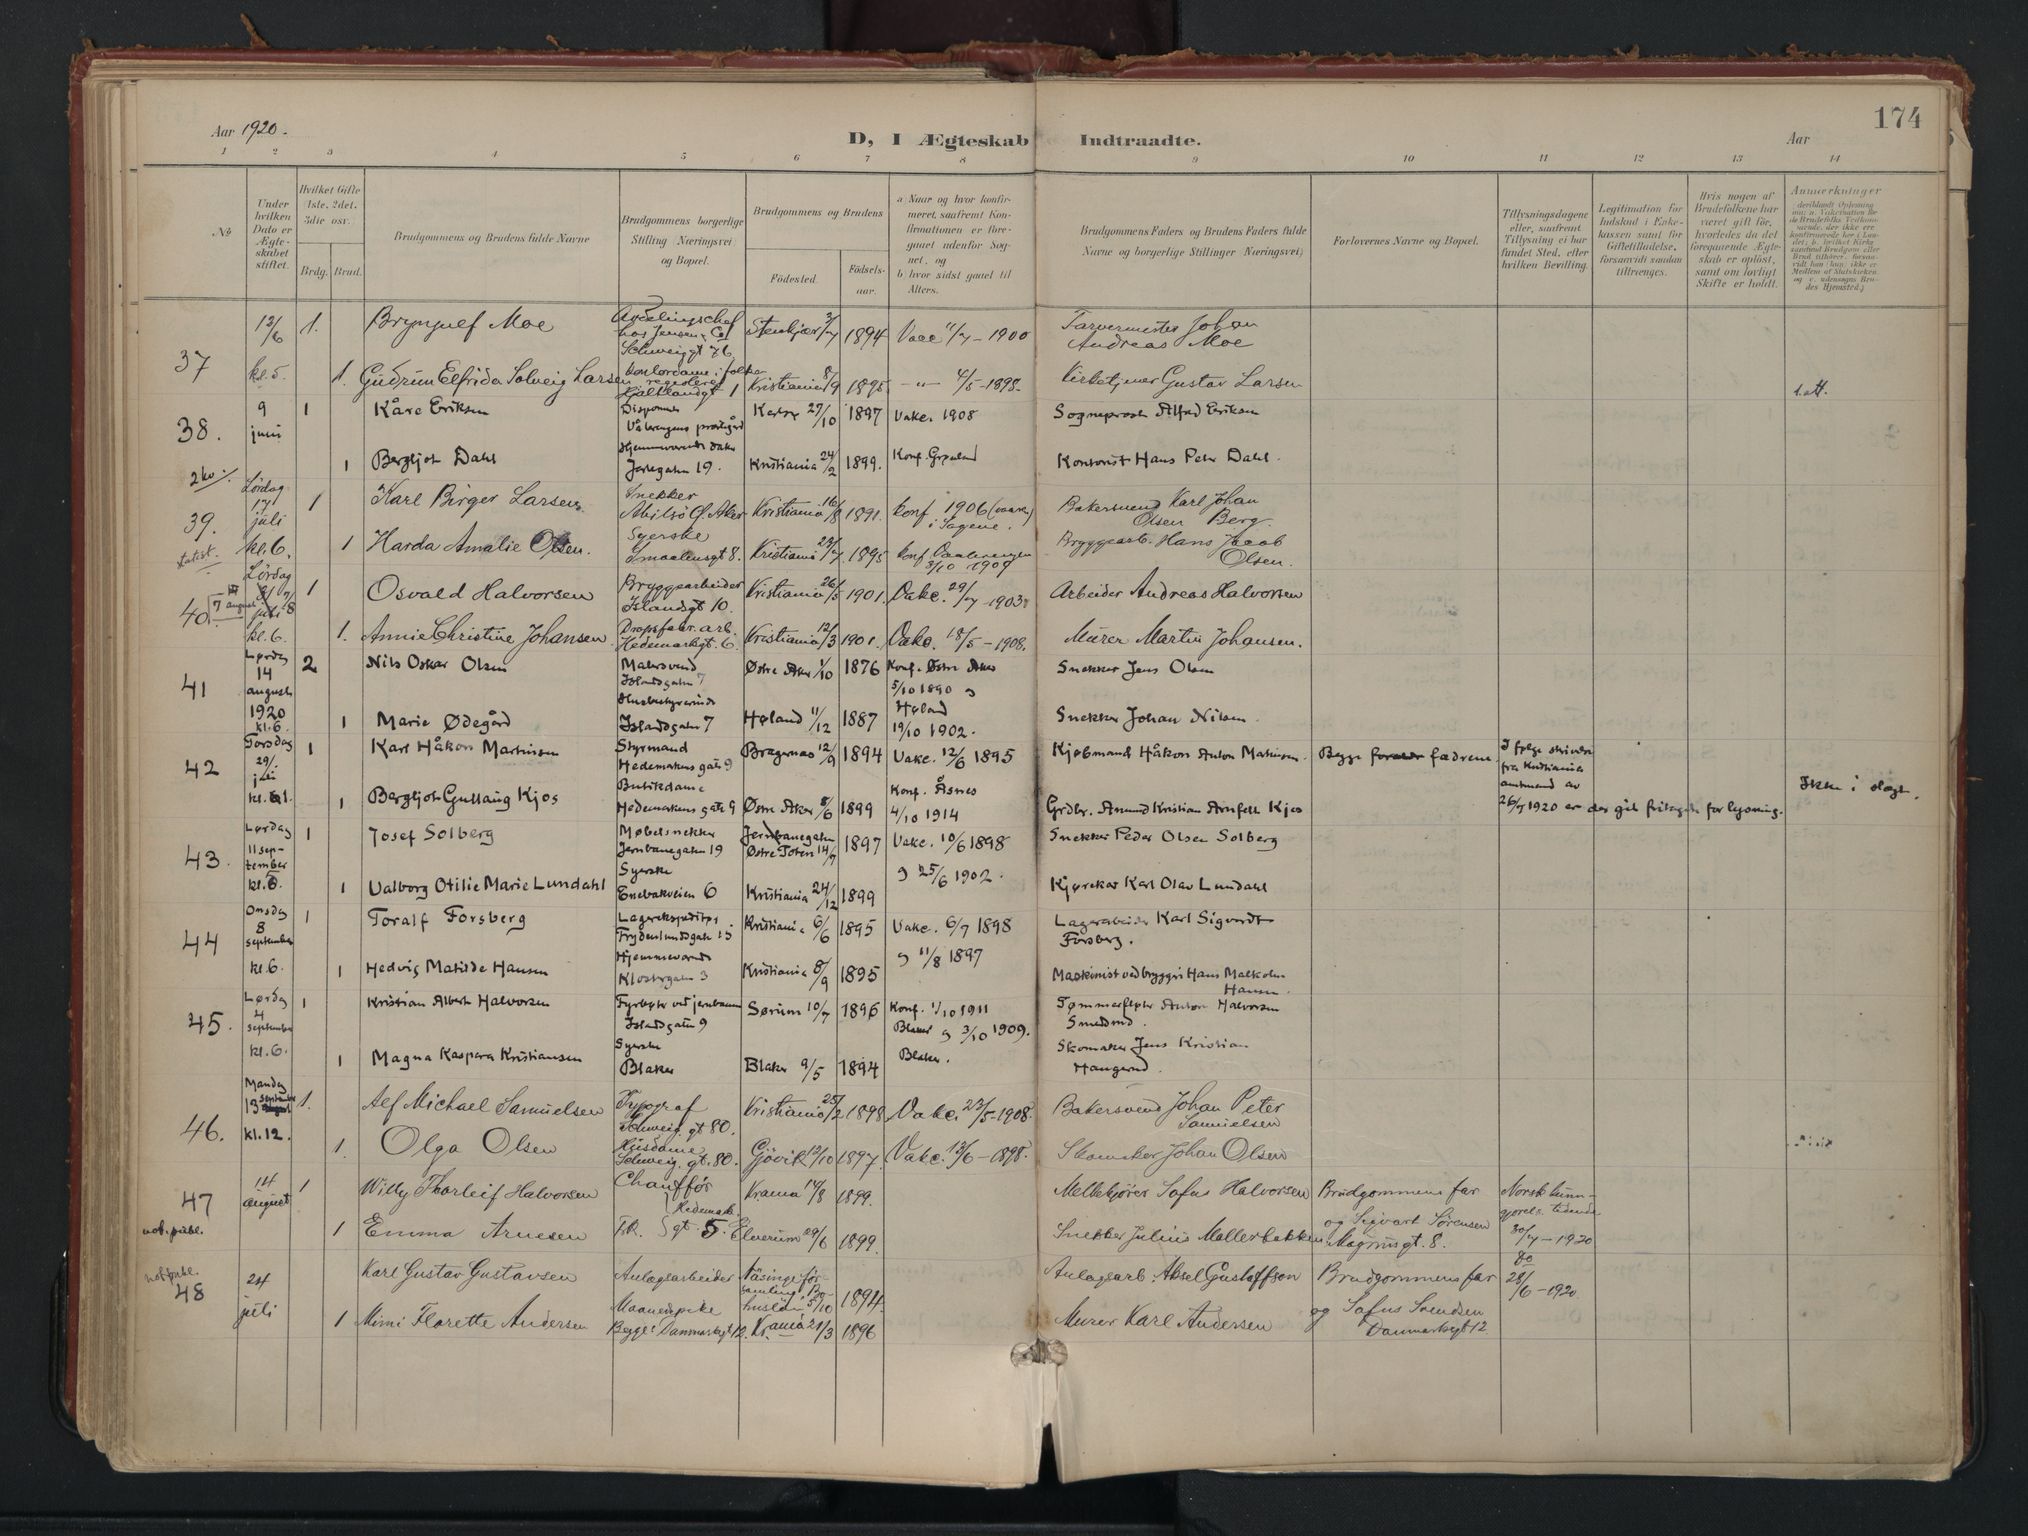 174
Aar 1920.
D, I Ægteskab Indtraadte.
Aar
1 2 3 4 5 6 7 8 9 10 11 12 13 14
No
Under hvilken Dato er Ægteskabet stiftet.
Hvilket Gifte (1ste, 2det, 3die osv.
Brdg. Brud.
Brudgommens og Brudens fulde Navne
Brudgommens borgerlige Stilling Næringsvei og Bopæl.
Brudgommens og Brudens
Fødested.
Fødselsaar.
a) Naar og hvor konfirmeret, saafremt Konfirmationen er foregaaet udenfor Sognet, og
b) hvor sidst gaaet til Alters.
Brudgommens Faders og Brudens Faders fulde Navne og borgerlige Stillinger Næringsvei)
Forlovernes Navne og Bopæl.
Tillysningsdagene eller, saafremt Tillysning ei har fundet Sted, efter hvilken Bevilling.
Legitimation for Indskud i Enkekassen samt for Giftetilladelse, forsaavidt saadan tiltrænges.
Hvis nogen af Brudefolkene har været gift før, hvorledes da det foregaaende Ægteskab er opløst, samt om lovligt Skifte er holdt.
Anmærkninger
37 12/6 1. Brynjulf Moe Avdelingschef hos Jensen & Co Schweiggt 76 Stenkjær 3/7 1894 Vacc 11/7 - 1900 Farvermester Johan Andreas Moe
kl. 5. 1. Gudrun Elfrida Solveig Larsen Kristiania 8/9 1895 -"- 4/5 - 1898. Kirketjener Gustav Larsen
38. 9 juni 1 Kåre Eriksen Disponent Vålerengens prestegård 27/10 1897 Vakc. 1908 Sogneprest Alfred Eriksen
1 Bergljot Dahl Hjemmeværende datter Jarlegaten 19. Kristiania 24/2 1899. Konf. Grønland Kontorist Hans Peter Dahl.
39. Lørdag 17 juli 1 Karl Birger Larsen. Snekker Abilsø Ø. Aker Kristiania 16/8 1891. konf 1906 i Sagene. Bakersvend Karl Johan Olsen Berg.
statist. kl. 6. 1 Harda Amalie Olsen. Syerske Smaalensgt 8. Kristiania 1895 konf Vaalerengen 3/10 1909 Bryggearb. Hans Jacob Olsen.
40. Lørdag 7 august kl. 6. 1 Osvald Halvorsen Bryggearbeider Islandsgt 10. Kristiania 26/5 1901. Vakc. 29/7 - 1903 Arbeider Andreas Halvorsen
1. Annie Christine Johansen Dropsfabr. arb. Hedemarksgt. 6. Kristiania 12/3 1901. Vakc. 18/5 - 1908. Murer Martin Johansen.
41 Lørdag 14 august 1920 kl. 6. 2 Nils Oskar Olsen Malersvend Islandsgaten 7 Østre Aker 1/10 1876 Konf. Østre Aker 5/10 1890 Snekker Jens Olsen
1 Marie Ødegård Husbestyrerinde Islandsgaten 7 Høland 11/12 1887 Høland 19/10 1902. Snekker Johan Nilsen.
42 Torsdag 29/ juli kl. 1. 1 Karl Håkon Martinsen Styrmand Hedemarkens gate 9 Bragernæs 12/9 1894 Vakc. 12/6 1895 Kjøbmand Håkon Anton Martinsen. Begge fædrene I følge skrivelse fra Kristiania amtmand av 26/7 1920 er der git fritagelse for lysning.
1 Bergljot Gullaug Kjos Butikdame Hedemarkens gate 9 Østre Aker 8/6 1899 Konf. Åsnes 4/10 1914 Grdbr. Amund Kristian Arnfelt Kjos Ikke i slegt.
43. Lørdag 11 september kl. 6. 1 Josef Solberg Møbelsnekker Jernbanegaten 19 Jernbanegaten Østre Toten 14/7 1897 Vakc. 10/6 1898 Snekker Peder Olsen Solberg
1 Valborg Otilie Marie Lundahl Syerske Enebakveien 6 Kristiania 24/12 1899 25/6 1902. Kjørekar Karl Olav Lundahl
44 Onsdag 8 september kl. 6. 1 Toralf Forsberg Lagerekspeditør Frydenlundsgate 15 Kristiania 6/6 1895 Vakc. 6/7 1898 Lagerarbeider Karl Sigvardt Forsberg.
1 Hedvig Matilde Hansen Hjemmeværende Klostergaten 3 Kristiania 8/9 1895 11/8 1897 Maskinist ved bryggeri Hans Malkolm Hansen.
45. Lørdag 4 september kl. 6. 1 Kristian Albert Halvorsen Fyrbøter ved jernbanen Islandsgaten 9 Sørum 10/7 1896 Konf. 1/10 1911 Blaker 3/10 1909. Tømmerfløter Anton Halvorsen
1 Magna Kaspara Kristiansen Syerske Blaker Blaker 9/5 1894 Blaker. Skomaker Jens Kristian Haugerud.
46. Mandag 13 september kl. 12. 1. Alf Michael Samuelsen Typograf Schweig. gt 80. Kristiania 25/2 1898 Vakc. 23/5 - 1908. Bakersvend Johan Peter Samuelsen
1. Olga Olsen Husdame Schweig. gt. 80. Gjøvik 12/10 1897. Vakc. 13/6 - 1898. Skomaker Johan Olsen
47 14 august 1 Willy Thorleif Halvorsen Chauffør Hedemark. gt. 5. Krania 14/8 1899. Melkekjører Sofus Halvorsen Brudgommens far og Sigvart Sørensen Magnusgt. 8. Norsk kunngjørels. tidende 30/7 - 1920
not. publ. 1 Emma Arnesen Elverum 29/6 1899. Snekker Julius Møllerbakken
48 not. publ. 24 juli Karl Gustav Gustavsen Anlægsarbeider Näsinge församling Bohuslän 5/10 1894. Anlægsarb. Aksel Gustaffson Brudgommens far og Sofus Svendsen Danmarksgt 12 Do 28/6 - 1920.
1 Mimi Florette Andersen Begge: Danmarksgt 12. Krania 21/3 1896 Murer Karl Andersen